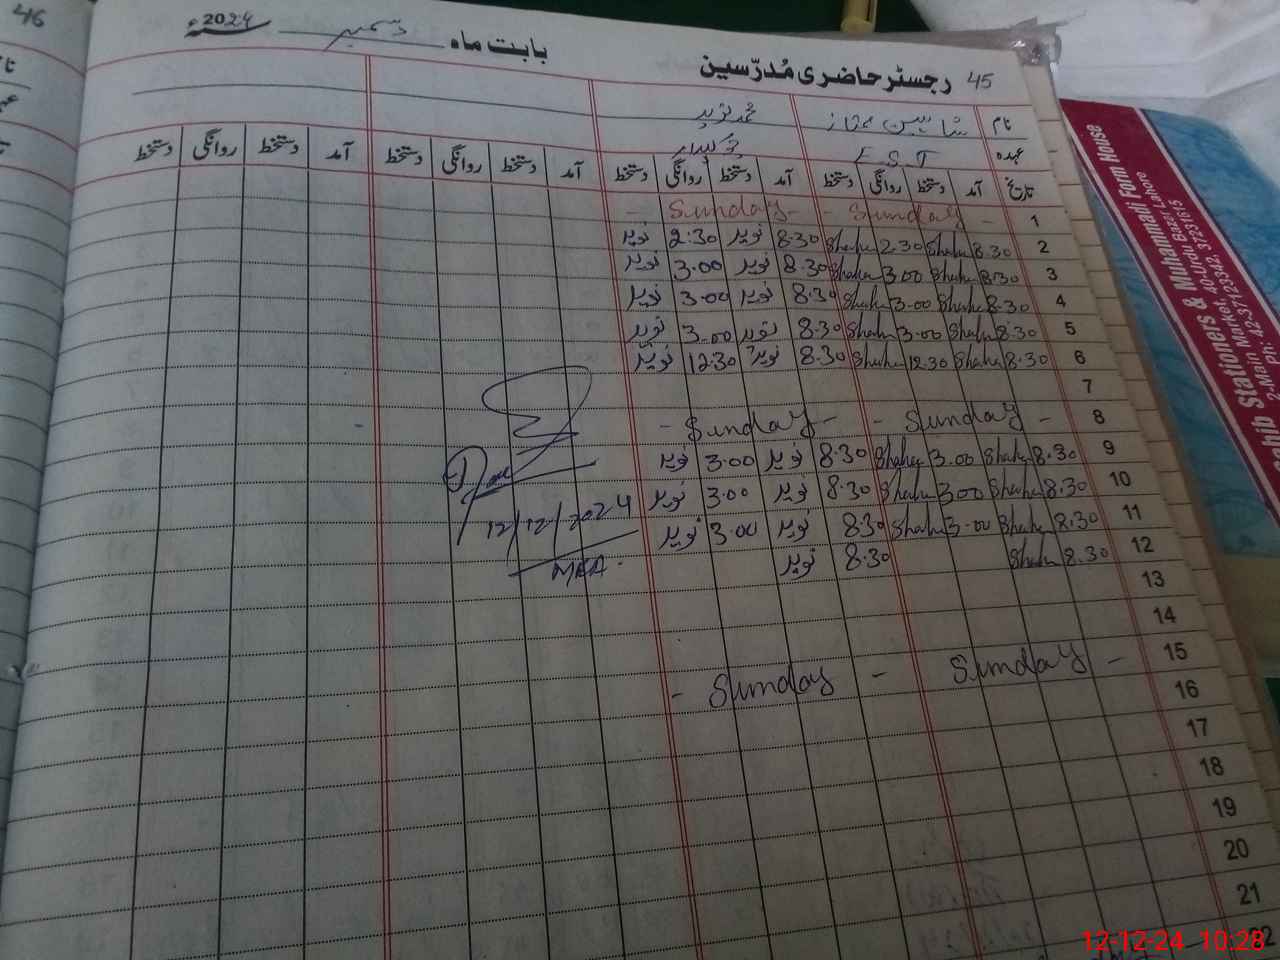 46
45 رجسٹر حاضری مُدرّسین بابت ماہ دسمبر سنہ 2024ء
نام شاہین ممتاز محمد نوید
عہدہ E.S.T
تاریخ آمد دستخط روانگی دستخط آمد دستخط روانگی دستخط آمد دستخط روانگی دستخط آمد دستخط روانگی دستخط
1 - Sunday - - Sunday -
2 8.30 Shahe 2.30 Shahe 8.30 نوید 2:30 نوید
3 8.30 Shahe 3.00 Shahe 8.30 نوید 3.00 نوید
4 8.30 Shahe 3.00 Shahe 8.30 نوید 3.00 نوید
5 8.30 Shahe 3.00 Shahe 8.30 نوید 3.00 نوید
6 8.30 Shahe 12.30 Shahe 8.30 نوید 12:30 نوید
7
8 - Sunday - - Sunday -
9 8.30 Shahe 3.00 Shahe 8.30 نوید 3.00 نوید
10 8.30 Shahe 3.00 Shahe 8.30 نوید 3.00 نوید
11 8.30 Shahe 3.00 Shahe 8.30 نوید 3.00 نوید
12 8.30 Shahe 8.30 نوید
12/12/2024
MEA.
13
14
15 - Sunday - - Sunday -
16
17
18
19
20
21
Sahib Stationers & Muhammadi Form House
2-Main Market, 40-Urdu Bazar Lahore
Ph: 42-37123342, 37231615
12-12-24 10:28